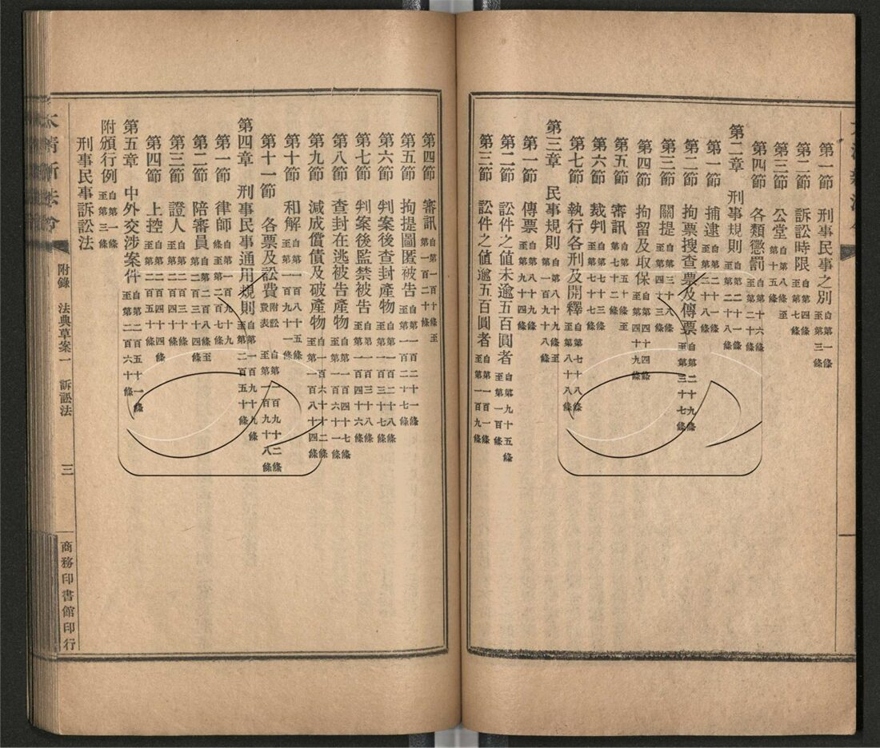 第一節 刑事民事之別 自第一條至第三條
第二節 訴訟時限 自第四條至第七條
第三節 公堂 自第八條至第十五條
第四節 各類懲罰 自第十六條至第二十條
第二章 刑事規則 自第二十一條
第一節 捕逮 自第二十一條
第二節 拘票搜查票及傳票 至第三十七條
第三節 關提 自第三十八條
第四節 拘留及取保 自第四十四條至第四十九條
第五節 審訊 自第五十條至第七十二條
第六節 裁判 自第七十三條
第七節 執行各刑及開釋 至第八十八條
第三章 民事規則 自第八十九條至第一百九十八條
第一節 傳票 自第八十九條至第九十四條
第二節 訟件之値未逾五百圓者 自第九十五條至第一百條
第三節 訟件之値逾五百圓者 至第一百九條
第四節 審訊 自第一百十條至第一百二十條
第五節 拘提圖匿被告 自第一百二十一條
第六節 判案後查封產物 自第一百二十八條至第一百三十七條
第七節 判案後監禁被告 自第一百三十八條至第一百四十六條
第八節 查封在逃被告產物 自第一百四十七條至第一百六十一條
第九節 減成償債及破產物 自第一百六十二條至第一百八十四條
第十節 和解 自第一百八十五條至第一百九十一條
第十一節 各票及訟費 附訟費表 自第一百九十二條至第一百九十八條
第四章 刑事民事通用規則 自第一百九十九條至第二百五十條
第一節 律師 自第一百九十九條至第二百七條
第二節 陪審員 自第二百八條至第二百三十四條
第三節 證人
第四節 上控 至第二百五十條
第五章 中外交涉案件 自第二百五十一條至第二百六十條
附頒行例 自第一條至第三條
刑事民事訴訟法
大清新法令 附錄 法典草案一 訴訟法 三 商務印書館印行